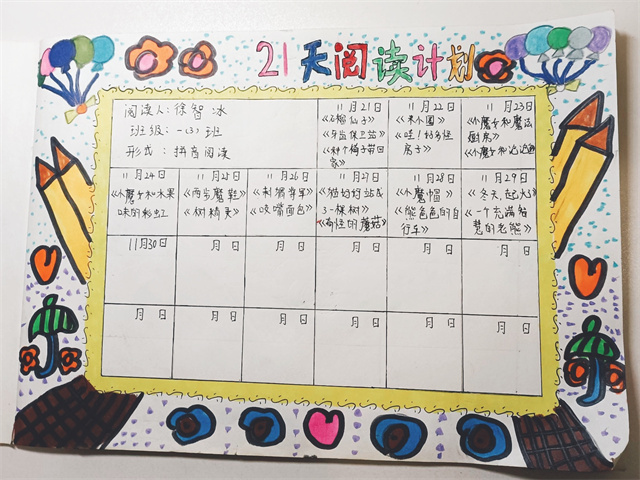 21天阅读计划
阅读人:徐智冰
班级:一(3)班
形式:拼音阅读
11月21日
《石榴仙子》
《牙齿保卫站》
《种个椅子带回家》
11月22日
《朱小国》
《哇!好多怪房子》
11月23日
《小魔女和魔法厨房》
《小魔女和
11月24日
《小魔女和水果味的彩虹
11月25日
《两只魔鞋》
《树精灵》
11月26日
《刺猬爷爷》
《咬嘴面包》
11月27日
《猫妈妈站成了一棵树》
《奇怪的蘑菇》
11月28日
《小魔帽》
《熊爸爸的自行车》
11月29日
《冬天,起火》
《一个充满智慧的老熊》
11月30日
月 日
月 日
月 日
月 日
月 日
月 日
月 日
月 日
月 日
月 日
月 日